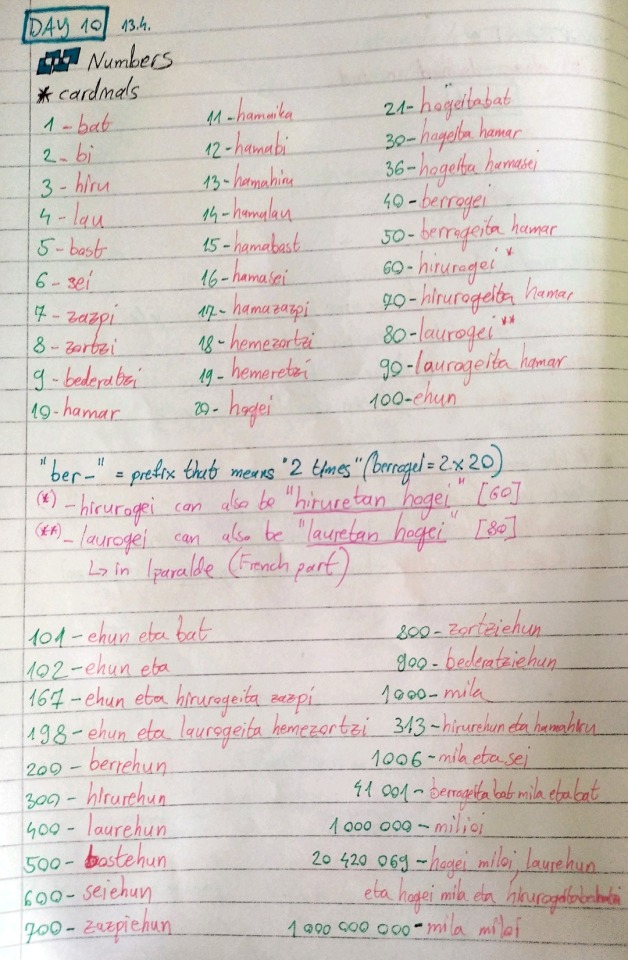 DAY 10 13.4.
Numbers
* cardinals
1 - bat
2 - bi
3 - hiru
4 - lau
5 - bost
6 - sei
7 - zazpi
8 - zortzi
9 - bederatzi
10 - hamar
11 - hamaika
12 - hamabi
13 - hamahiru
14 - hamalau
15 - hamabost
16 - hamasei
17 - hamazazpi
18 - hemezortzi
19 - hemeretzi
20 - hogei
21 - hogeitabat
30 - hogeita hamar
36 - hogeita hamasei
40 - berrogei
50 - berrogeita hamar
60 - hirurogei *
70 - hirurogeita hamar
80 - laurogei **
90 - laurogeita hamar
100 - ehun
"ber-" = prefix that means "2 times" (berrogei = 2 x 20)
(*) - hirurogei can also be "hiruretan hogei" [60]
(**) - laurogei can also be "lauretan hogei" [80]
↳ in Iparalde (French part)
101 - ehun eta bat
102 - ehun eta
167 - ehun eta hirurogeita zazpi
198 - ehun eta laurogeita hemezortzi
200 - berrehun
300 - hirurehun
400 - laurehun
500 - bostehun
600 - seiehun
700 - zazpiehun
800 - zortziehun
900 - bederatziehun
1000 - mila
313 - hirurehun eta hamahiru
1006 - mila eta sei
41 001 - berrogeita bat mila eta bat
1 000 000 - milioi
20 420 069 - hogei miloi, laurehun
eta hogei mila eta
1 000 000 000 - mila miloi